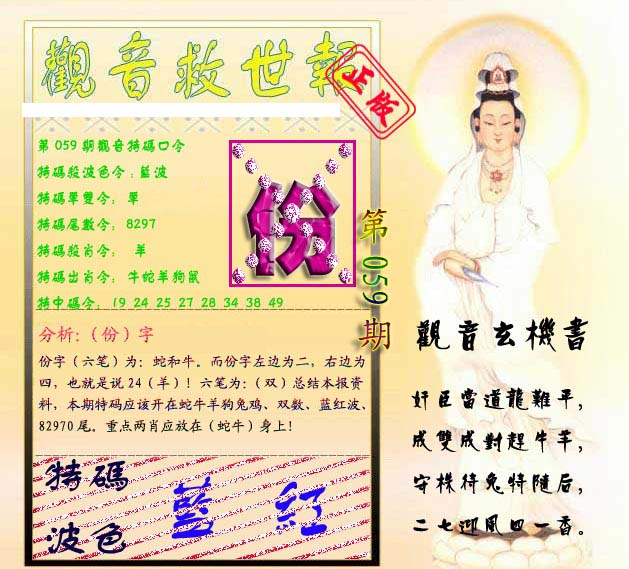 觀音救世報
正版
第059期觀音特碼口令
特碼殺波色令:藍波
特碼單雙令: 單
特碼尾數令: 8297
特碼殺肖令: 羊
特碼出肖令: 牛蛇羊狗鼠
特中碼令: 19 24 25 27 28 34 38 49
份
第059期
分析:(份)字
份字(六笔)为: 蛇和牛。而份字左边为二, 右边为
四, 也就是说24(羊)! 六笔为:(双)总结本报资
料, 本期特码应该开在蛇牛羊狗兔鸡、双数、蓝红波、
82970尾。重点两肖应放在(蛇牛)身上!
特碼
波色
藍 红
觀音玄機書
奸臣當道龍難平,
成雙成對趕牛羊,
守株待兔特隨后,
二七迎風四一香。